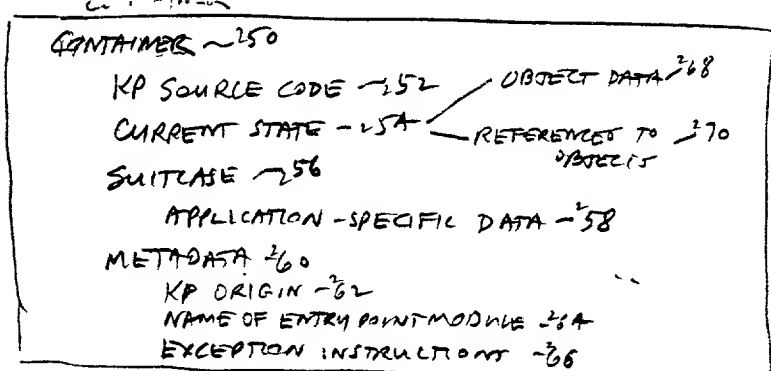 CONTAINER ~250
KP SOURCE CODE ~252
OBJECT DATA ~268
CURRENT STATE ~254
REFERENCES TO OBJECTS ~270
SUITCASE ~256
APPLICATION-SPECIFIC DATA ~258
METADATA ~260
KP ORIGIN ~262
NAME OF ENTRY POINT MODULE ~264
EXCEPTION INSTRUCTIONS ~266